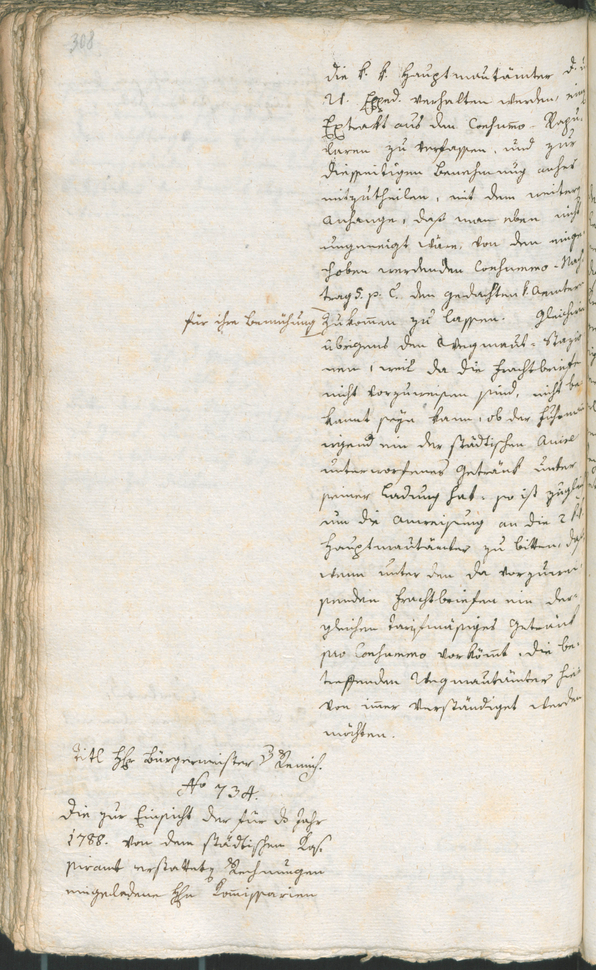 308
die k. k. Hauptmautämter d.
U. Exped. verhalten werden, einen
Extrakt aus den Consummo-Repu-
laren zu verfassen, und zur
diesseitigen Benehmung anher
mitzutheilen, mit dem weitern
Anhange, daß man eben nicht
ungeneigt wäre, von dem einge-
hoben werdenden Consummo-Nach
trag 5. p. C. den gedachten k. Aemter
für ihre Bemühung
zukommen zu lassen. Gleichwie
übrigens den Wegmaut-Statio
nen, weil da die Frachtbriefe
nicht vorzuweisen sind, nicht be
kannt seyn kann, ob der Fuhrman
irgend ein der städtischen
unterworfenes Getränk unter
seiner Ladung hat: so ist zugleich
um die Anweisung an die 2 k k
Hauptmautämter zu bitten, daß
wenn unter den da vorzuwei
senden Frachtbriefen ein der-
gleichen tarifmäßiges Getränk
pro Consummo vorkömmt, die be-
treffenden Wegmautämter hie
von immer verständiget werden
möchten.
Titl Hr Bürgermeister
No 734.
Die zur Einsicht der für d Jahr
1788. von dem städtischen Kas
sieramt erstatteten Rechnungen
eingeladene Hrn Kommissarien